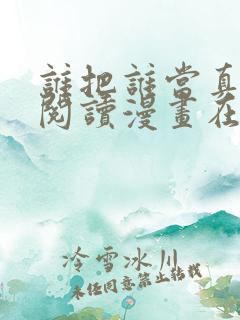 誰把誰當真
閱讀漫畫在
冷雪冰川
未经同意禁止转载